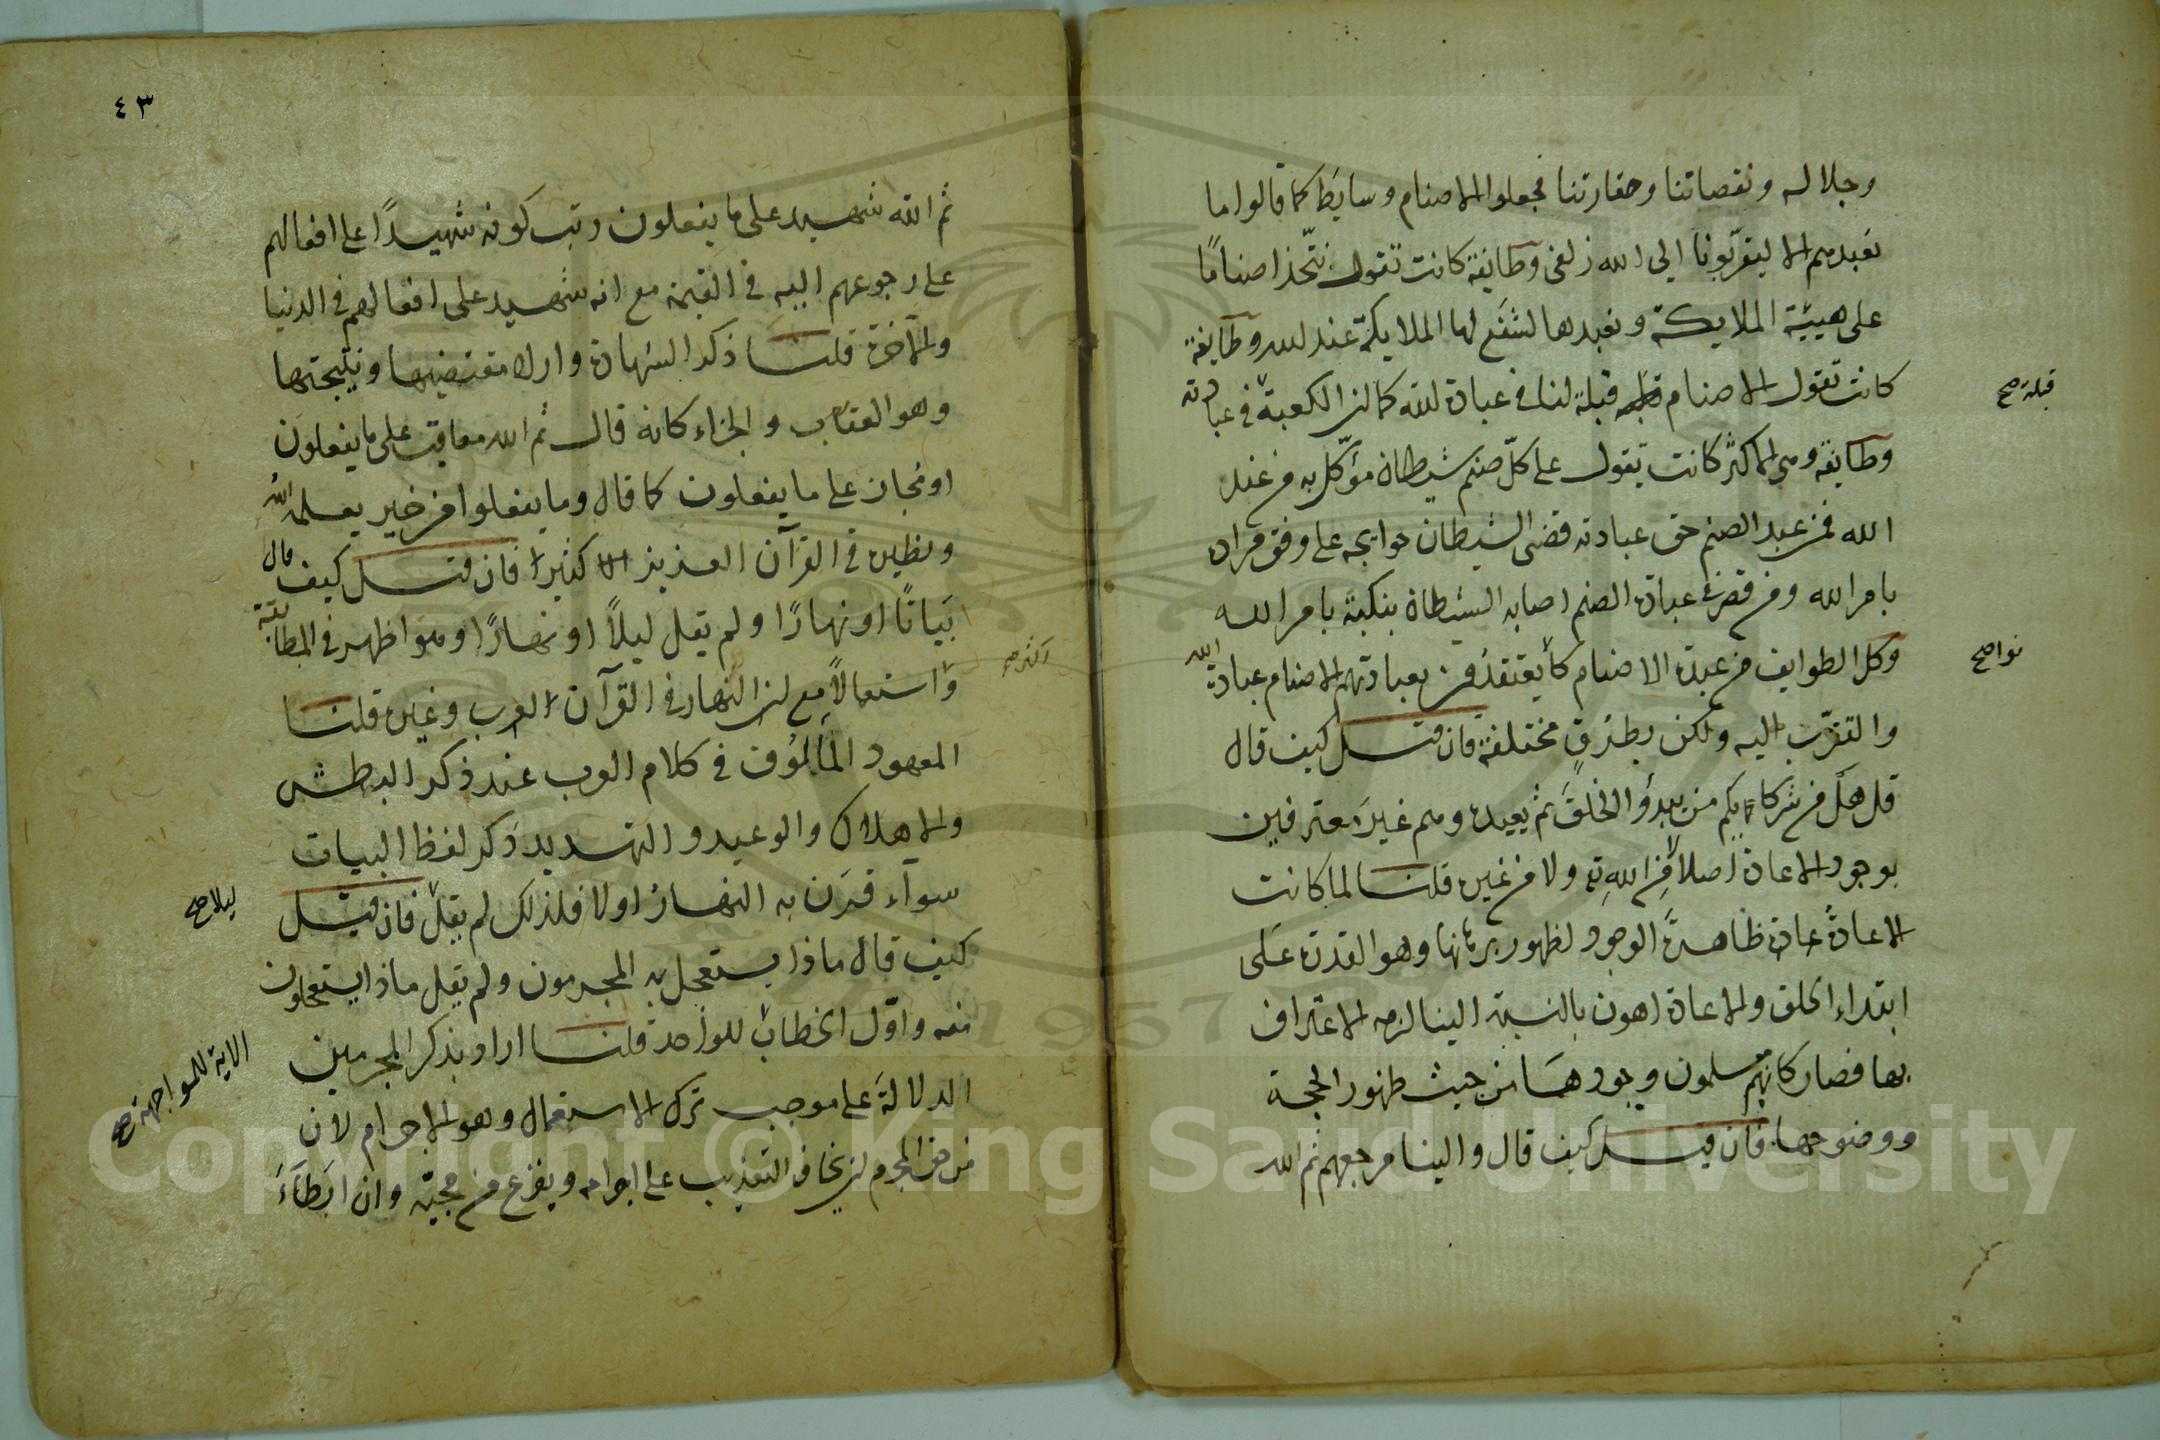 وجلاله ونقصاتنا وحقارتنا فجعلوا الاصنام وسايط كما قالوا ما
نعبدهم الا ليقربونا الى الله زلفى وطايفة كانت تقول نتخذ اصناما
على هيئة الملايكة ونعبدها لتشفع لها الملايكة عند الله وطايفة
كانت تقول الاصنام قبلة لنا في عبادة الله كما ان الكعبة في عبادته
قبلة صح
وطايفة وهي الاكثر كانت تقول على كل صنم شيطان موكل به من عند
الله فمن عبد الصنم حق عبادته قضى الشيطان حوايجه على وفق مراده
بامر الله ومن قصر في عبادة الصنم اصابه الشيطان بنكبة بامر الله
وكل الطوايف من عبدة الاصنام كا يعتقدون بعبادتهم الاصنام عبادة الله
نوا صح
والتقرب اليه ولكن بطرق مختلفة فان قيل كيف قال
قل هل من شركائكم من يبدؤ الخلق ثم يعيده وهم غير معترفين
بوجود الاعادة اصلا لا من الله تع ولا من غيره قلنا لما كانت
الاعادة عادة ظاهرة الوجود لظهور برهانها وهو القدرة على
ابتداء الخلق والاعادة اهون بالنسبة الينا لزمهم الاعتراف
بها فصار كانهم مسلمون وجودها من حيث ظهور الحجة
ووضوحها فان قيل كيف قال والينا مرجعهم ثم الله
٤٣
ثم الله شهيد على ما يفعلون رتب كونه شهيدا على افعالهم
على رجوعهم اليه في القيمة مع انه شهيد على افعالهم في الدنيا
والاخرة قلنا ذكر الشهادة واراد مقتضيها ونتيجتها
وهو العقاب والجزاء كانه قال ثم الله معاقب على ما يفعلون
او مجاز على ما يفعلون كما قال وما يفعلوا من خير يعلمه الله
ونظيره في القرآن العزيز الا كثيرا فان قيل كيف قال
بياتا او نهارا ولم يقل ليلا او نهارا وهو اظهر في المطابقة
اكثر صح
واستعمالا مع ان النهار في القرآن العرب وغيره قلنا
المعهود المألوف في كلام العرب عند ذكر البطش
والاهلاك والوعيد والتهديد ذكر لفظ البيات
سواء قرن به النهار او لا فلذلك لم يقل فان قيل
ليلا صح
كيف قال ماذا يستعجل به المجرمون ولم يقل ماذا يستعجلون
منه واول الخطاب للواحد قلنا اراد بذكر المجرمين
الاية للمواجهة صح
الدلالة على موجب ترك الاستعمال وهو الاجرام لان
من حق المجرم ان يخاف التعذيب على اجرامه ويفزع من مجيئه وان ابطاء
Copyright © King Saud University
1957